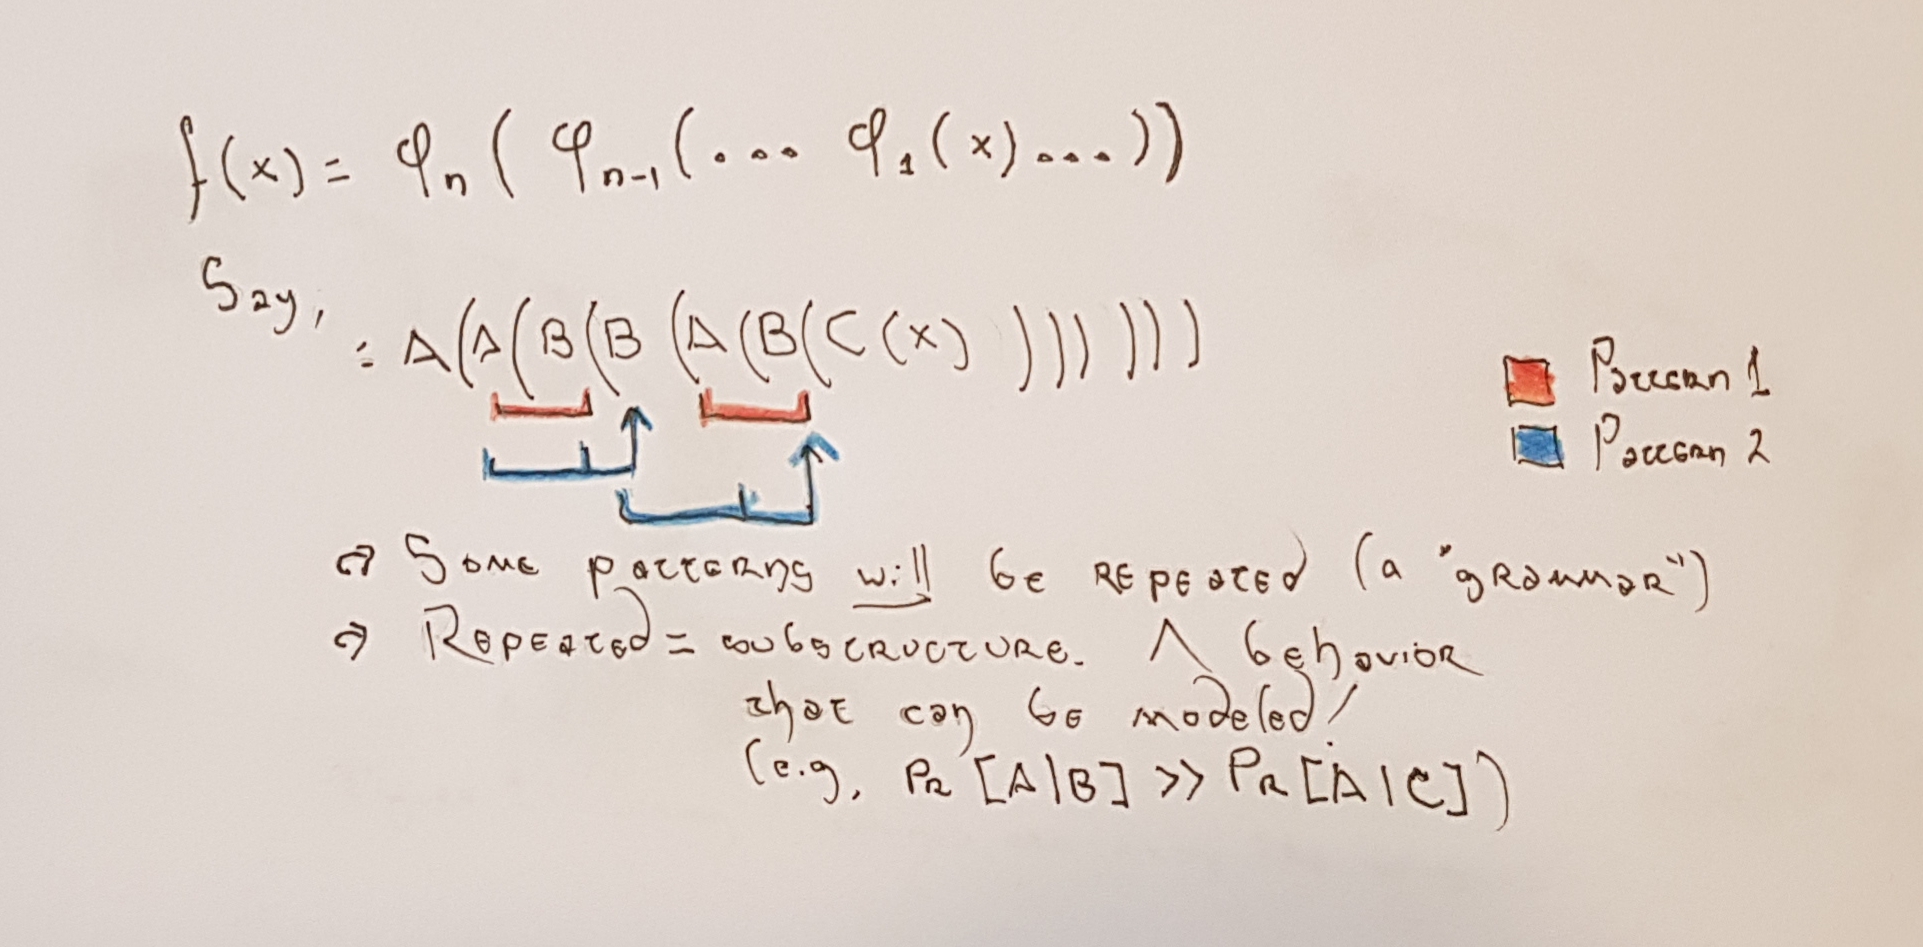 f(x) = φₙ( φₙ₋₁(... φ₁(x)...))
Say,
= A(A(B(B(A(B(C(x) ))))))
Pattern 1
Pattern 2
⇒ Some patterns will be repeated (a "grammar")
⇒ Repeated = substructure. ∧ behavior
that can be modeled!
(e.g, Pr [A|B] >> Pr [A|C])